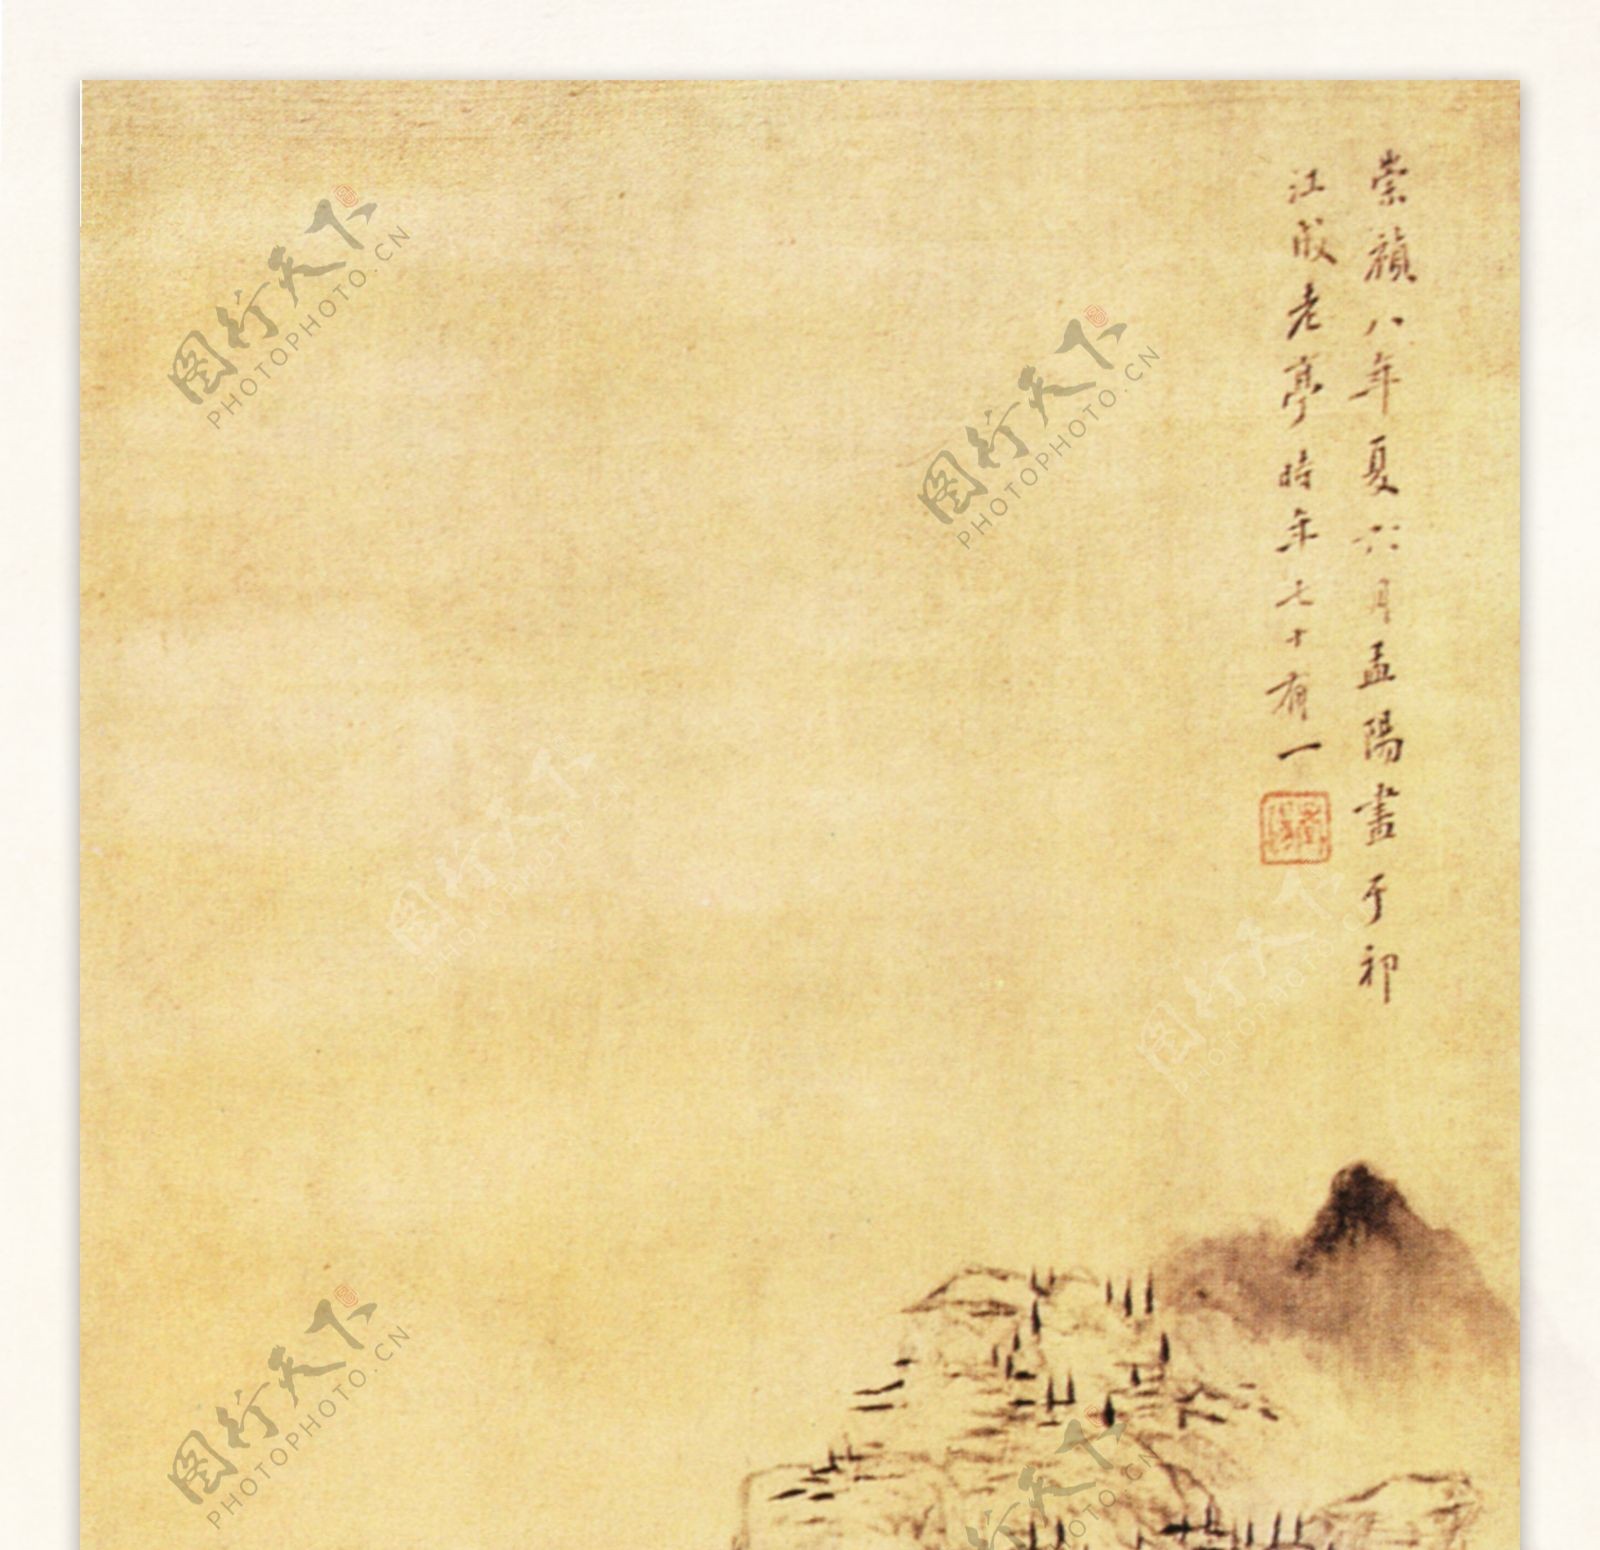 崇禎八年夏六月孟陽畫于祁
江成老亭時年七十有一
孟陽
图行天下
PHOTOPHOTO.CN
图行天下
PHOTOPHOTO.CN
图行天下
PHOTOPHOTO.CN
图行天下
PHOTOPHOTO.CN
图行天下
PHOTOPHOTO.CN
图行天下
PHOTOPHOTO.CN